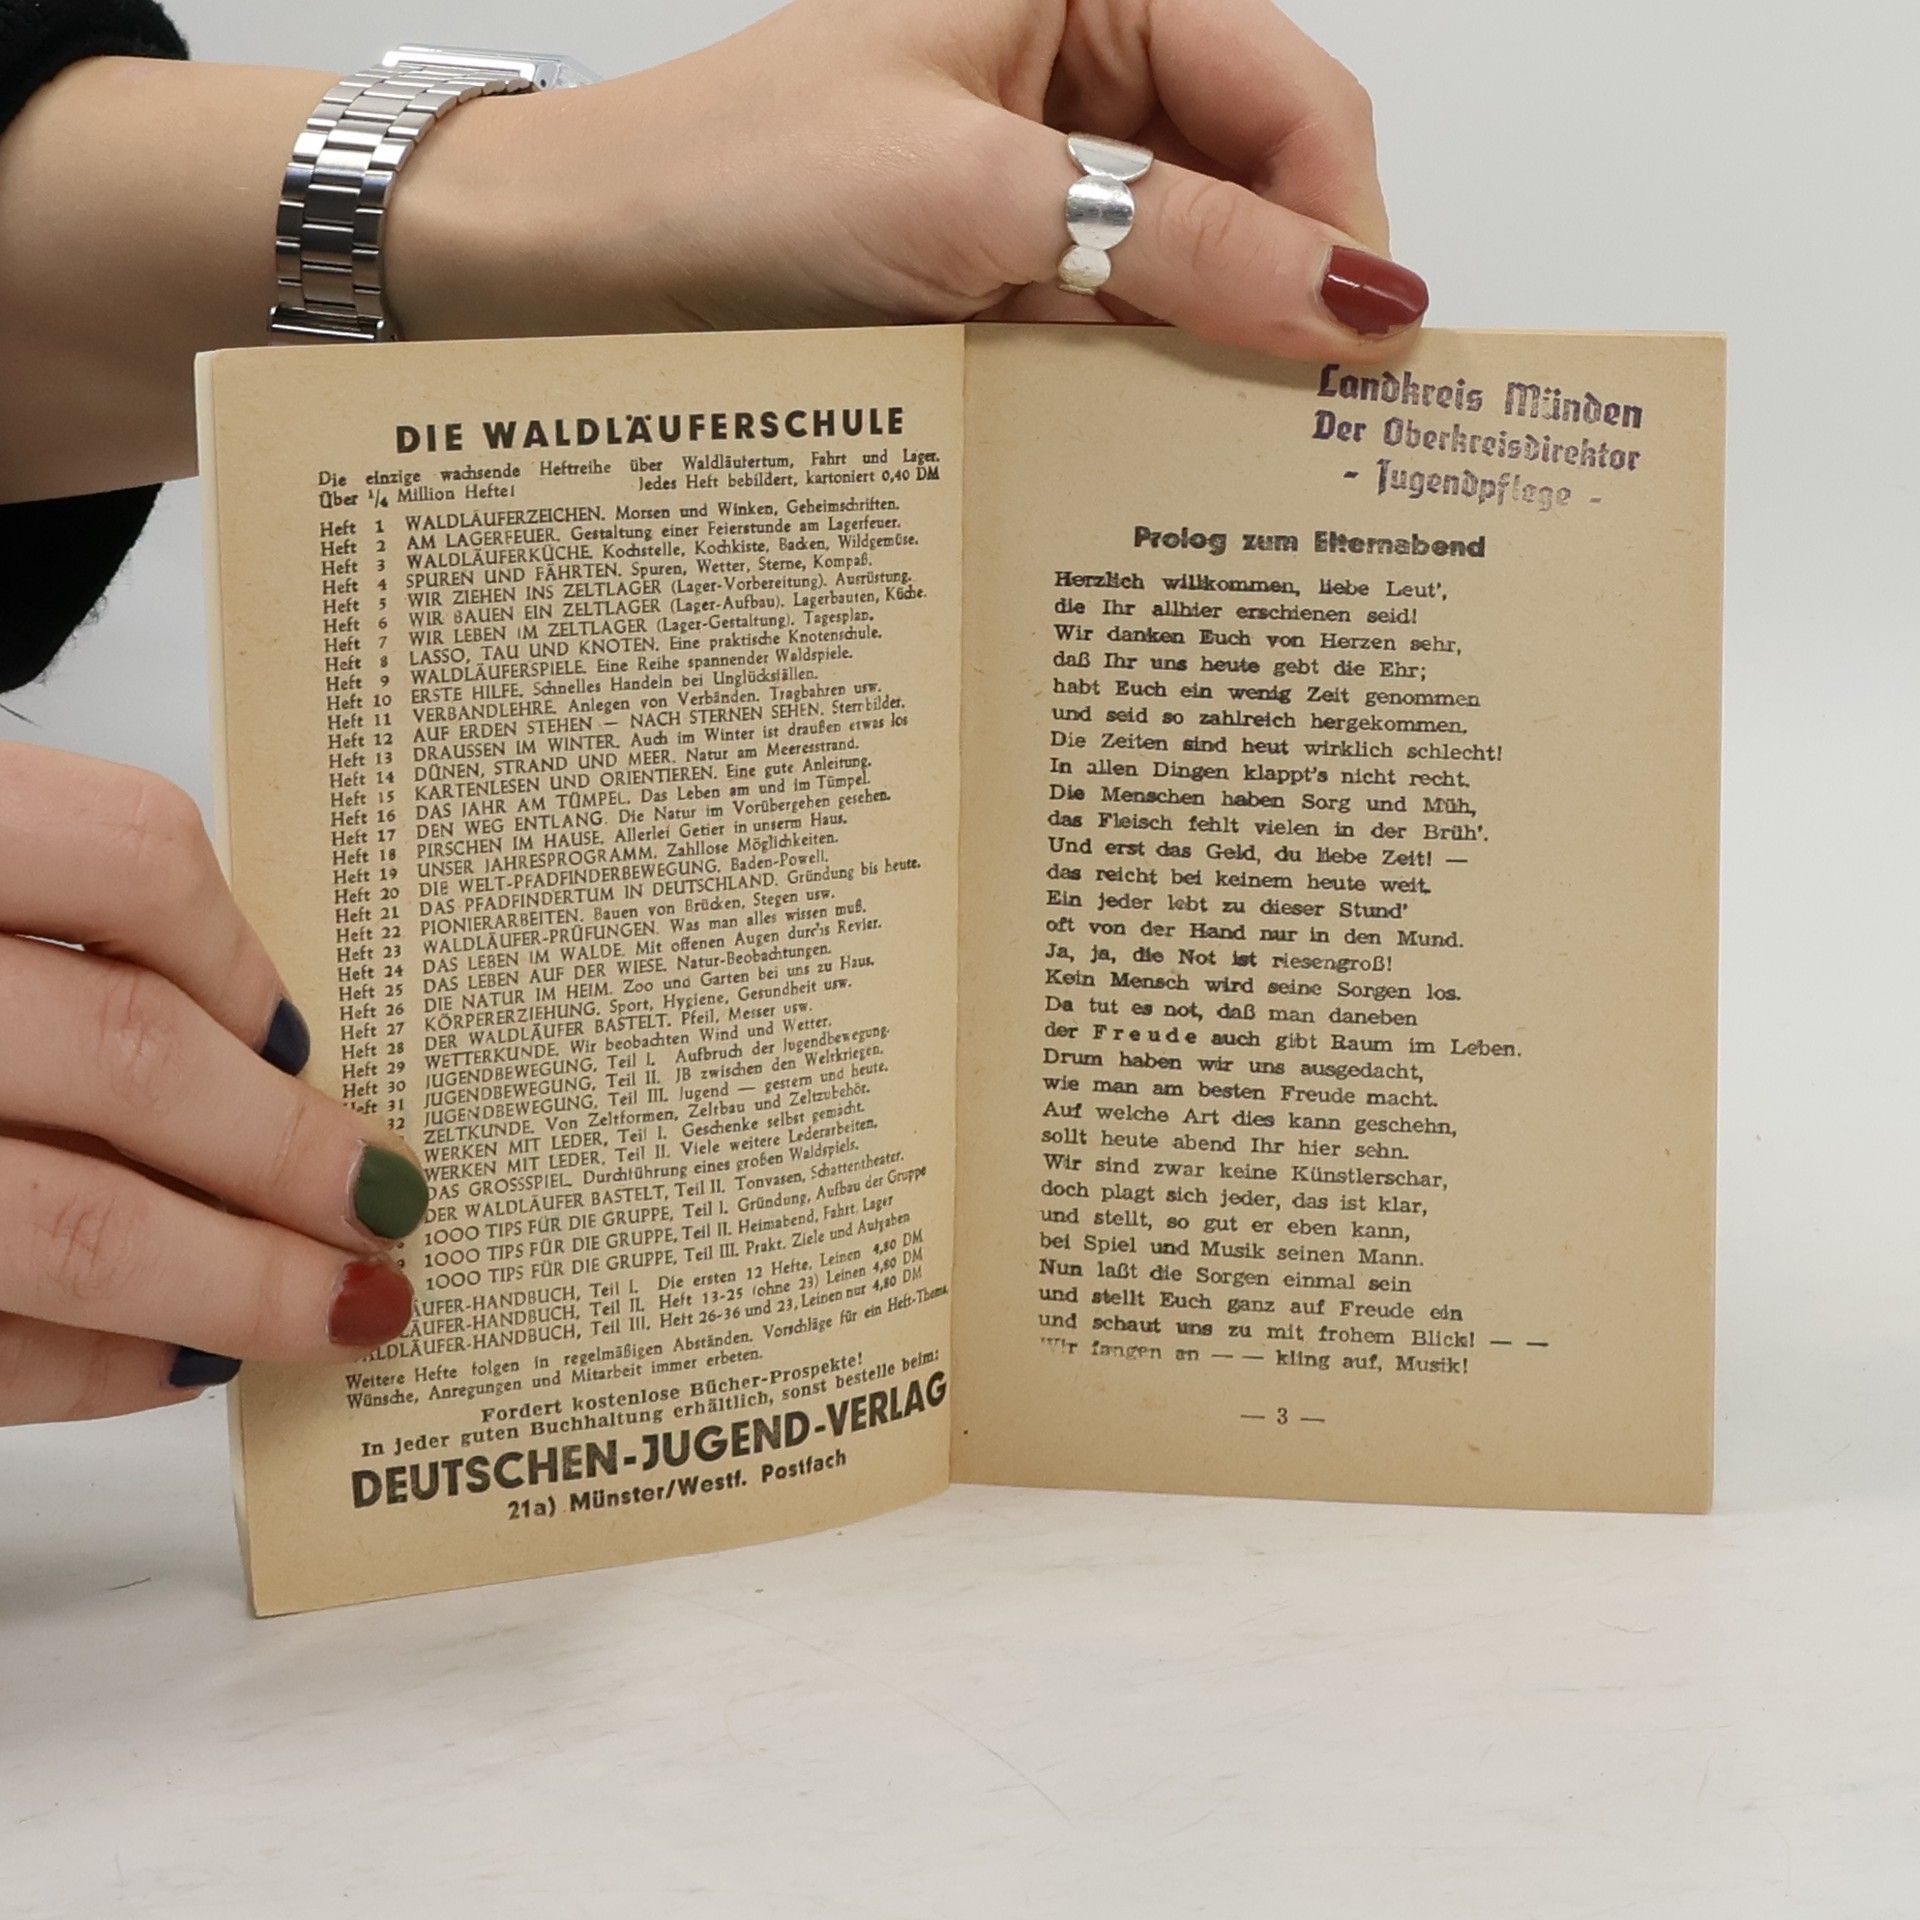 DIE WALDLÄUFERSCHULE
Die einzige wachsende Heftreihe über Waldläufertum, Fahrt und Lager.
Über 1/4 Million Hefte! Jedes Heft bebildert, kartoniert 0,40 DM
Heft 1 WALDLÄUFERZEICHEN. Morsen und Winken, Geheimschriften.
Heft 2 AM LAGERFEUER. Gestaltung einer Feierstunde am Lagerfeuer.
Heft 3 WALDLÄUFERKÜCHE. Kochstelle, Kochkiste, Backen, Wildgemüse.
Heft 4 SPUREN UND FÄHRTEN. Spuren, Wetter, Sterne, Kompaß.
Heft 5 WIR ZIEHEN INS ZELTLAGER (Lager-Vorbereitung). Ausrüstung.
Heft 6 WIR BAUEN EIN ZELTLAGER (Lager-Aufbau). Lagerbauten, Küche.
Heft 7 WIR LEBEN IM ZELTLAGER (Lager-Gestaltung). Tagesplan.
Heft 8 LASSO, TAU UND KNOTEN. Eine praktische Knotenschule.
Heft 9 WALDLÄUFERSPIELE. Eine Reihe spannender Waldspiele.
Heft 10 ERSTE HILFE. Schnelles Handeln bei Unglücksfällen.
Heft 11 VERBANDLEHRE. Anlegen von Verbänden. Tragbahren usw.
Heft 12 AUF ERDEN STEHEN — NACH STERNEN SEHEN. Sternbilder.
Heft 13 DRAUSSEN IM WINTER. Auch im Winter ist draußen etwas los
Heft 14 DÜNEN, STRAND UND MEER. Natur am Meeresstrand.
Heft 15 KARTENLESEN UND ORIENTIEREN. Eine gute Anleitung.
Heft 16 DAS JAHR AM TÜMPEL. Das Leben am und im Tümpel.
Heft 17 DEN WEG ENTLANG. Die Natur im Vorübergehen gesehen.
Heft 18 PIRSCHEN IM HAUSE. Allerlei Getier in unserm Haus.
Heft 19 UNSER JAHRESPROGRAMM. Zahllose Möglichkeiten.
Heft 20 DIE WELT-PFADFINDERBEWEGUNG. Baden-Powell.
Heft 21 DAS PFADFINDERTUM IN DEUTSCHLAND. Gründung bis heute.
Heft 22 PIONIERARBEITEN. Bauen von Brücken, Stegen usw.
Heft 23 WALDLÄUFER-PRÜFUNGEN. Was man alles wissen muß.
Heft 24 DAS LEBEN IM WALDE. Mit offenen Augen durchs Revier.
Heft 25 DAS LEBEN AUF DER WIESE. Natur-Beobachtungen.
Heft 26 DIE NATUR IM HEIM. Zoo und Garten bei uns zu Haus.
Heft 27 KÖRPERERZIEHUNG. Sport, Hygiene, Gesundheit usw.
Heft 28 DER WALDLÄUFER BASTELT. Pfeil, Messer usw.
Heft 29 WETTERKUNDE. Wir beobachten Wind und Wetter.
Heft 30 JUGENDBEWEGUNG, Teil I. Aufbruch der Jugendbewegung.
Heft 31 JUGENDBEWEGUNG, Teil II. JB zwischen den Weltkriegen.
32 JUGENDBEWEGUNG, Teil III. Jugend — gestern und heute.
ZELTKUNDE. Von Zeltformen, Zeltbau und Zeltzubehör.
WERKEN MIT LEDER, Teil I. Geschenke selbst gemacht.
WERKEN MIT LEDER, Teil II. Viele weitere Lederarbeiten.
DAS GROSSSPIEL. Durchführung eines großen Waldspiels.
DER WALDLÄUFER BASTELT, Teil II. Tonvasen, Schattentheater.
1000 TIPS FÜR DIE GRUPPE, Teil I. Gründung, Aufbau der Gruppe
1000 TIPS FÜR DIE GRUPPE, Teil II. Heimabend, Fahrt, Lager
1000 TIPS FÜR DIE GRUPPE, Teil III. Prakt. Ziele und Aufgaben
ÄUFER-HANDBUCH, Teil I. Die ersten 12 Hefte, Leinen 4,80 DM
LÄUFER-HANDBUCH, Teil II. Heft 13-25 (ohne 23) Leinen 4,80 DM
ALDLÄUFER-HANDBUCH, Teil III. Heft 26-36 und 23, Leinen nur 4,80 DM
Weitere Hefte folgen in regelmäßigen Abständen. Vorschläge für ein Heft-Thema,
Wünsche, Anregungen und Mitarbeit immer erbeten.
Fordert kostenlose Bücher-Prospekte!
In jeder guten Buchhaltung erhältlich, sonst bestelle beim:
DEUTSCHEN-JUGEND-VERLAG
21a) Münster/Westf. Postfach
Landkreis Münden
Der Oberkreisdirektor
- Jugendpflege -
Prolog zum Elternabend
Herzlich willkommen, liebe Leut',
die Ihr allhier erschienen seid!
Wir danken Euch von Herzen sehr,
daß Ihr uns heute gebt die Ehr;
habt Euch ein wenig Zeit genommen
und seid so zahlreich hergekommen.
Die Zeiten sind heut wirklich schlecht!
In allen Dingen klappt's nicht recht.
Die Menschen haben Sorg und Müh,
das Fleisch fehlt vielen in der Brüh'.
Und erst das Geld, du liebe Zeit! —
das reicht bei keinem heute weit.
Ein jeder lebt zu dieser Stund'
oft von der Hand nur in den Mund.
Ja, ja, die Not ist riesengroß!
Kein Mensch wird seine Sorgen los.
Da tut es not, daß man daneben
der Freude auch gibt Raum im Leben.
Drum haben wir uns ausgedacht,
wie man am besten Freude macht.
Auf welche Art dies kann geschehn,
sollt heute abend Ihr hier sehn.
Wir sind zwar keine Künstlerschar,
doch plagt sich jeder, das ist klar,
und stellt, so gut er eben kann,
bei Spiel und Musik seinen Mann.
Nun laßt die Sorgen einmal sein
und stellt Euch ganz auf Freude ein
und schaut uns zu mit frohem Blick! — —
Wir fangen an — — kling auf, Musik!
— 3 —